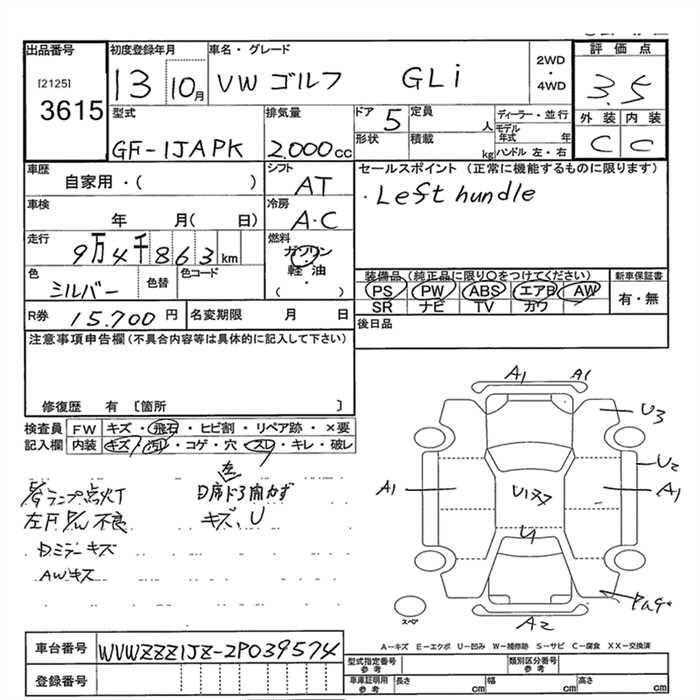 出品番号 初度登録年月 車名・グレード 2WD ・ 4WD 評価点
[2125] 3615 13 10月 VW ゴルフ GLi 3.5
型式 排気量 ドア 5 定員 人 ディーラー・並行 外装 内装
GF-1JAPK 2.000cc 形状 積載 kg モデル年式 年 ハンドル 左・右 C C
車歴 シフト セールスポイント（正常に機能するものに限ります）
自家用・( ) AT ・Left hundle
車検 冷房
年 月( 日) A・C
走行 燃料
9万4千863km ガソリン
色 色替 色コード 軽油 装備品（純正品に限り○をつけてください） 新車保証書
シルバー ( ・ ) PS PW ABS エアB AW 有・無
SR ナビ TV カワ
R券 15.700円 名変期限 月 日 後日品
注意事項申告欄（不具合内容等は具体的に記入して下さい）
修復歴 有 〔箇所 〕
検査員 FW キズ・飛石・ヒビ割・リペア跡・×要
記入欄 内装 キズ・汚れ・コゲ・穴・スレ・キレ・破レ
ランプ点灯
左F P/W 不良
Dミラーキズ
AWキズ
左
キズ、U
A1 A1
U3
U2
A1 A1
U1
A2
スペア
A－キズ E－エクボ U－凹み W－補修跡 S－サビ C－腐食 XX－交換済
車台番号 WVWZZZ1JZ-2P039574 型式指定番号 参考 類別区分番号 参考
登録番号 車庫証明用 参考 長さ cm 幅 cm 高さ cm